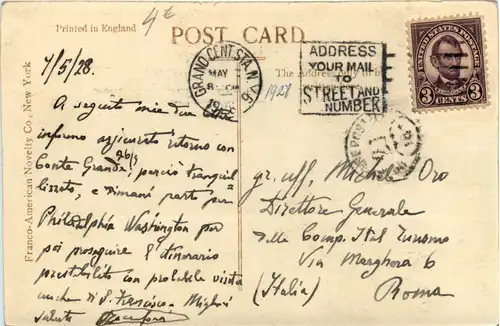 Printed in England
4 E
POST CARD
Franco-American Novelty Co., New York
The Address only
7/5/28.
A seguito mie due
informo aggiunto ritorno con
Conte Grande 26/5 perciò tranquil-
lizzato, e dimani parto per
Philadelphia Washington per
poi proseguire l'itinerario
prestabilito con probabile visita
anche a S. Francisco. Migliori
saluti
GRAND CENT. STA. N.Y.
MAY
8
6
1928
ADDRESS
YOUR MAIL
TO
STREET AND
NUMBER
UNITED STATES POSTAGE
LINCOLN
3 CENTS 3
gr. uff. Oro
Direttore Generale
della Comp. Ital Turismo
Via Marghera 6
(Italia) Roma